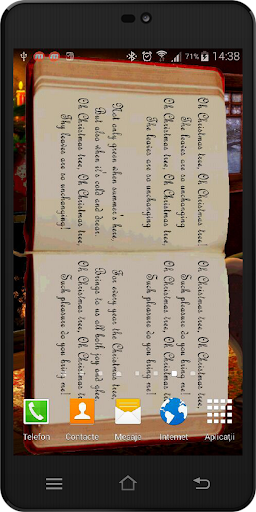 71% 14:38
Oh Christmas tree, Oh Christmas tree,
The leaves are so unchanging
Oh Christmas tree, Oh Christmas tree,
The leaves are so unchanging
Not only green when summer's here,
But also when it's cold and drear.
Oh Christmas tree, Oh Christmas tree,
Thy leaves are so unchanging!
Oh Christmas tree, Oh Christmas tree,
Such pleasure do you bring me!
Oh Christmas tree, Oh Christmas tree,
Such pleasure do you bring me!
For every year the Christmas tree,
Brings to us all both joy and glee.
Oh Christmas tree, Oh Christmas tree,
Such pleasure do you bring me!
Telefon Contacte Mesaje Internet Aplicații